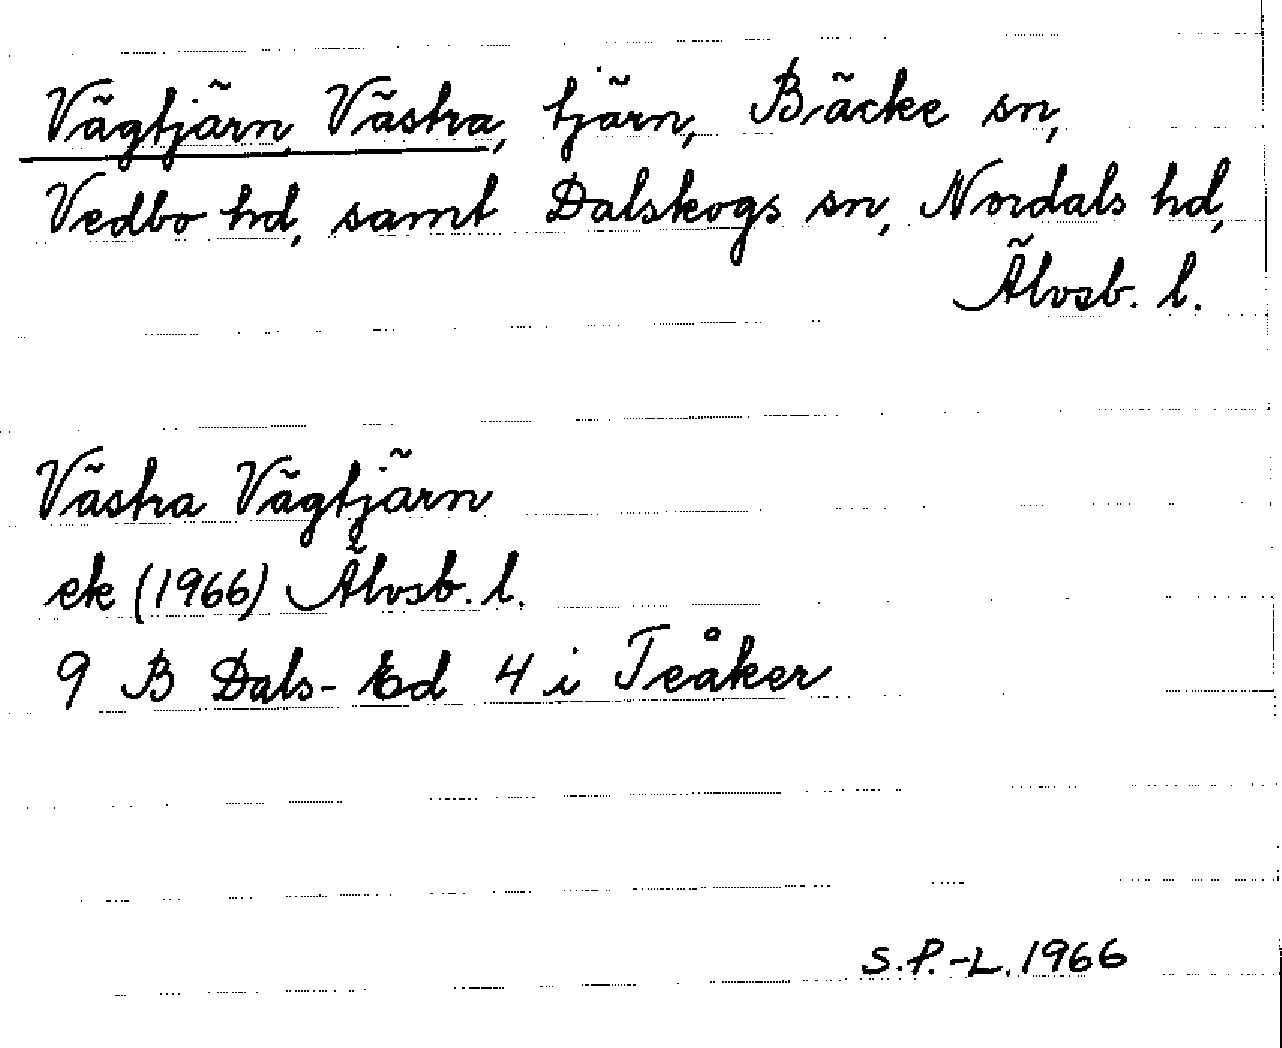 Vägtjärn Västra, tjärn, Bäcke sn,
Vedbo hd, samt Dalskogs sn, Nordals hd,
Älvsb. l.
Västra Vägtjärn
ek (1966) Älvsb. l.
9 B Dals-Ed 4 i Teåker
S.P.-L. 1966